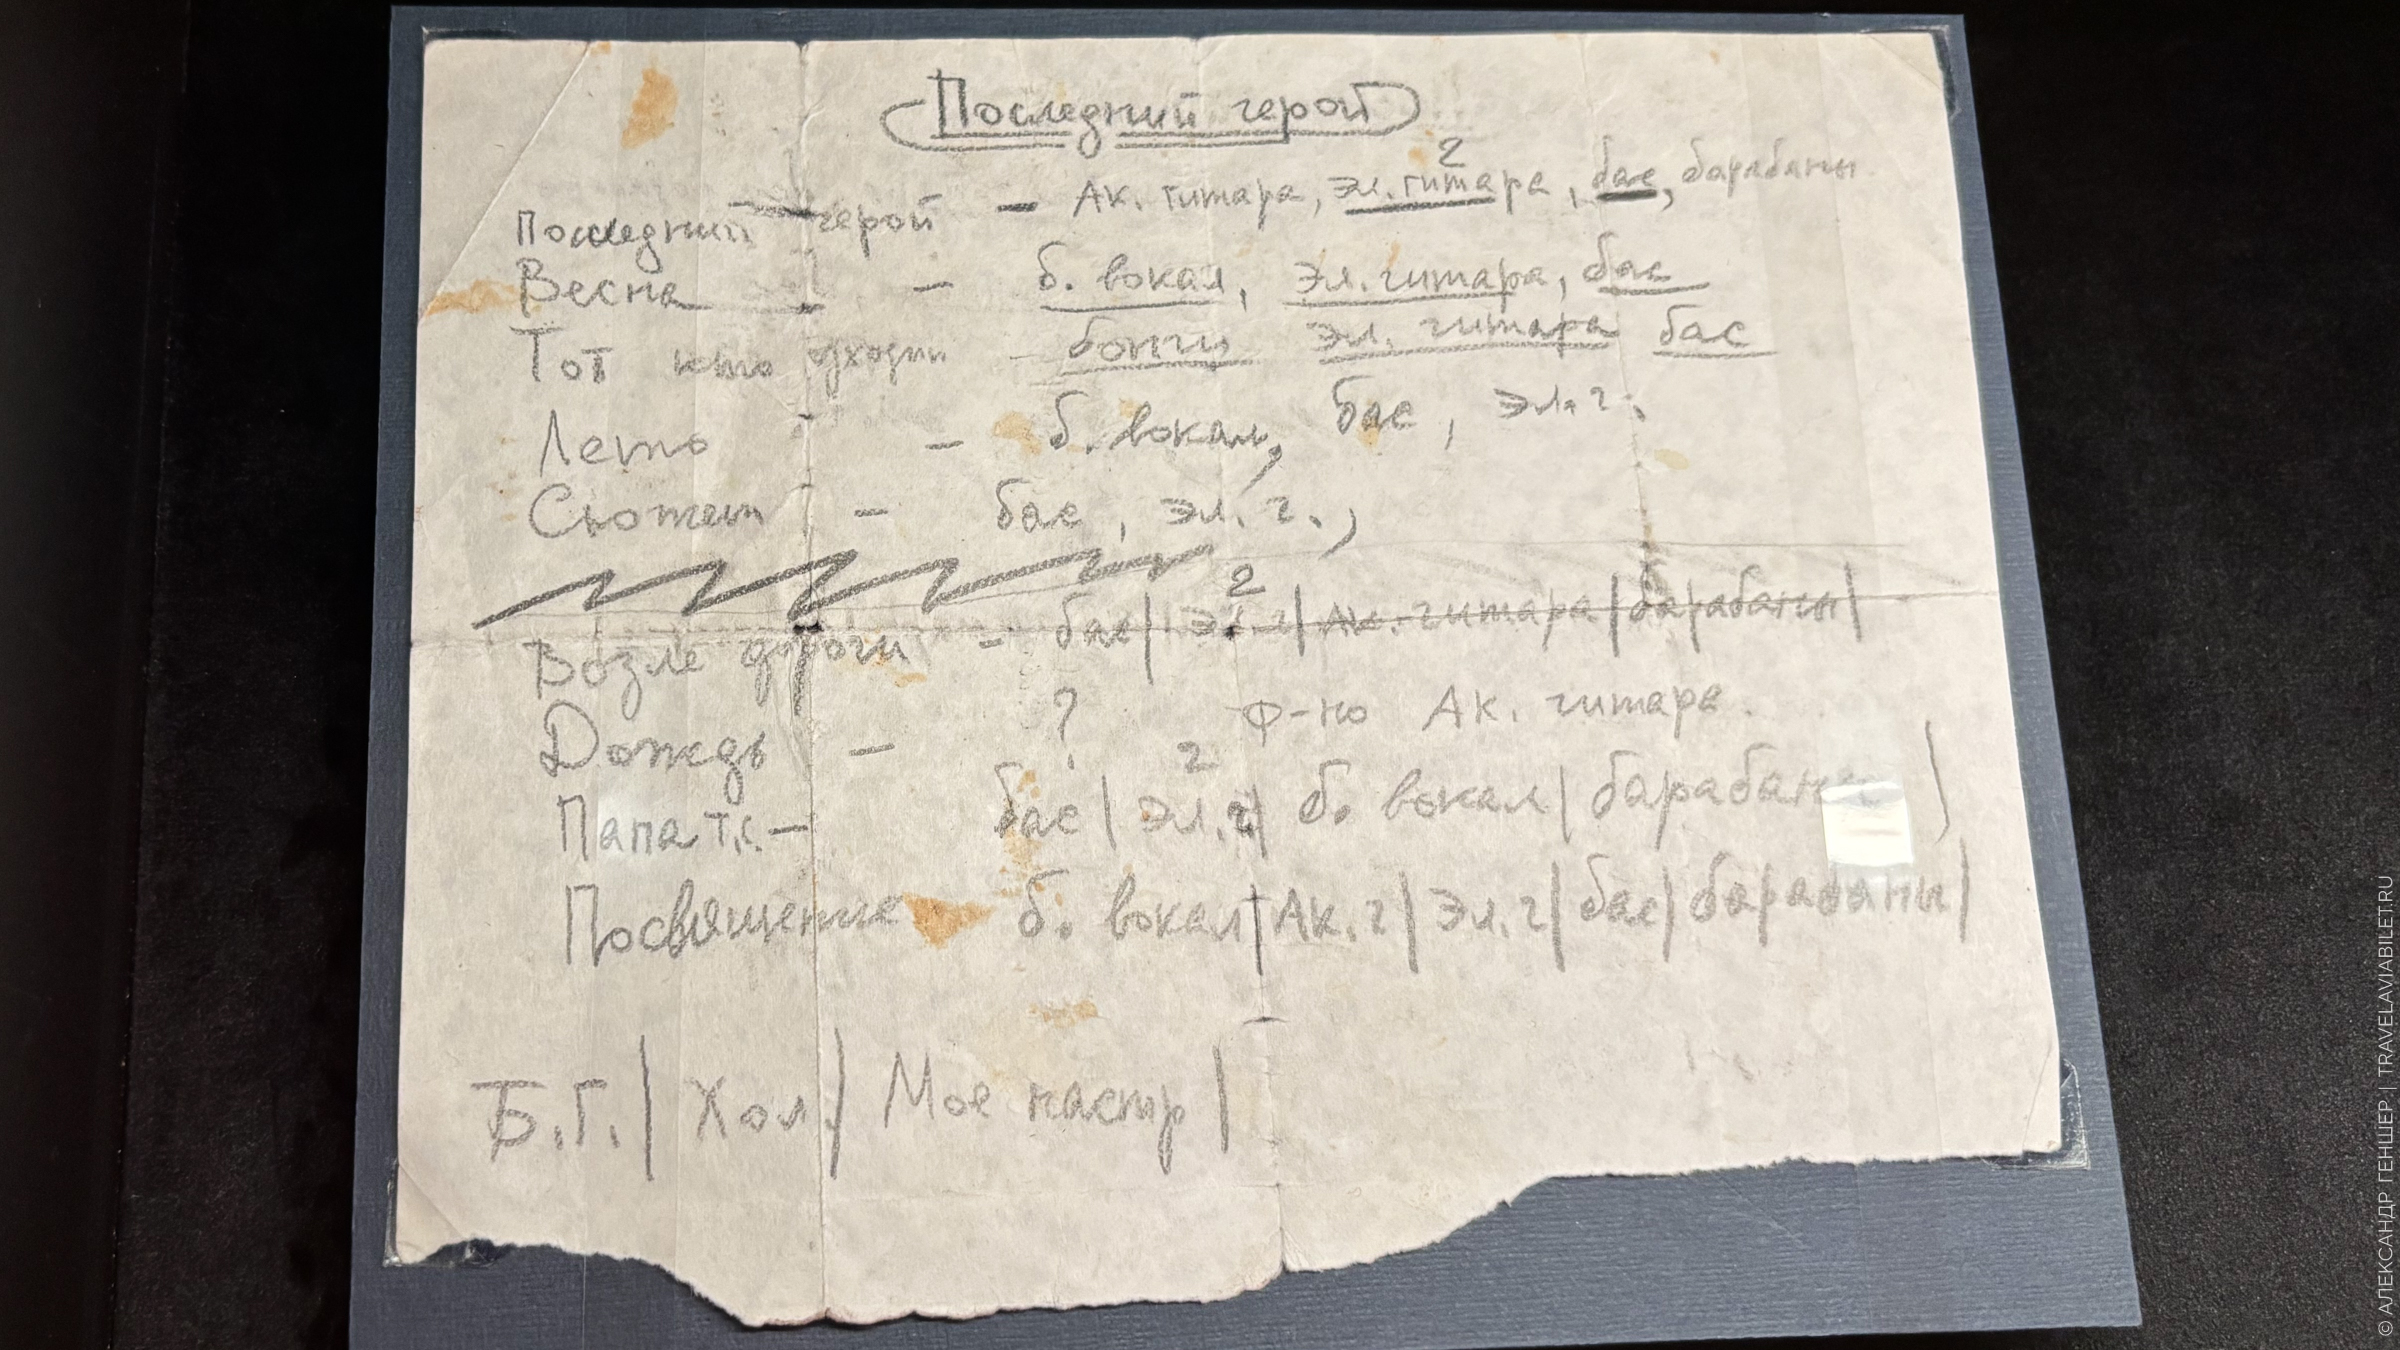 Последний герой
Последний герой – Ак. гитара, эл. гитара 2, бас, барабаны
Весна – б. вокал, эл. гитара, бас
Тот кто – бонги эл. гитара бас
Лето – б. вокал, бас, эл. г.
Сюжет – бас, эл. г.,
Возле дороги – бас | эл. г 2 | Ак. гитара | барабаны |
Дождь – ? ф-но Ак. гитара.
Папа т.к. – бас | эл. г 2 | б. вокал | барабаны |
Посвящение б. вокал | Ак. г | Эл. г | бас | барабаны |
Б.Г. | Хол. | Мое настр |
© АЛЕКСАНДР ГЕНШЕР | TRAVELAVIABILET.RU